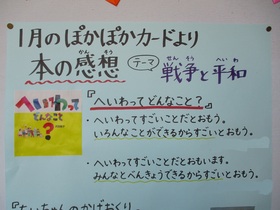 1月のぽかぽかカードより
本の感想 テーマ 戦争と平和
かんそう せんそう へいわ
へいわって
どんなこと
?
『へいわってどんなこと?』
・へいわってすごいことだとおもう。
いろんなことができるからすごいとおもう。
・へいわってすごいことだとおもいます。
みんなとべんきょうできるからすごいとおもう。
『ちいちゃんのかげおくり